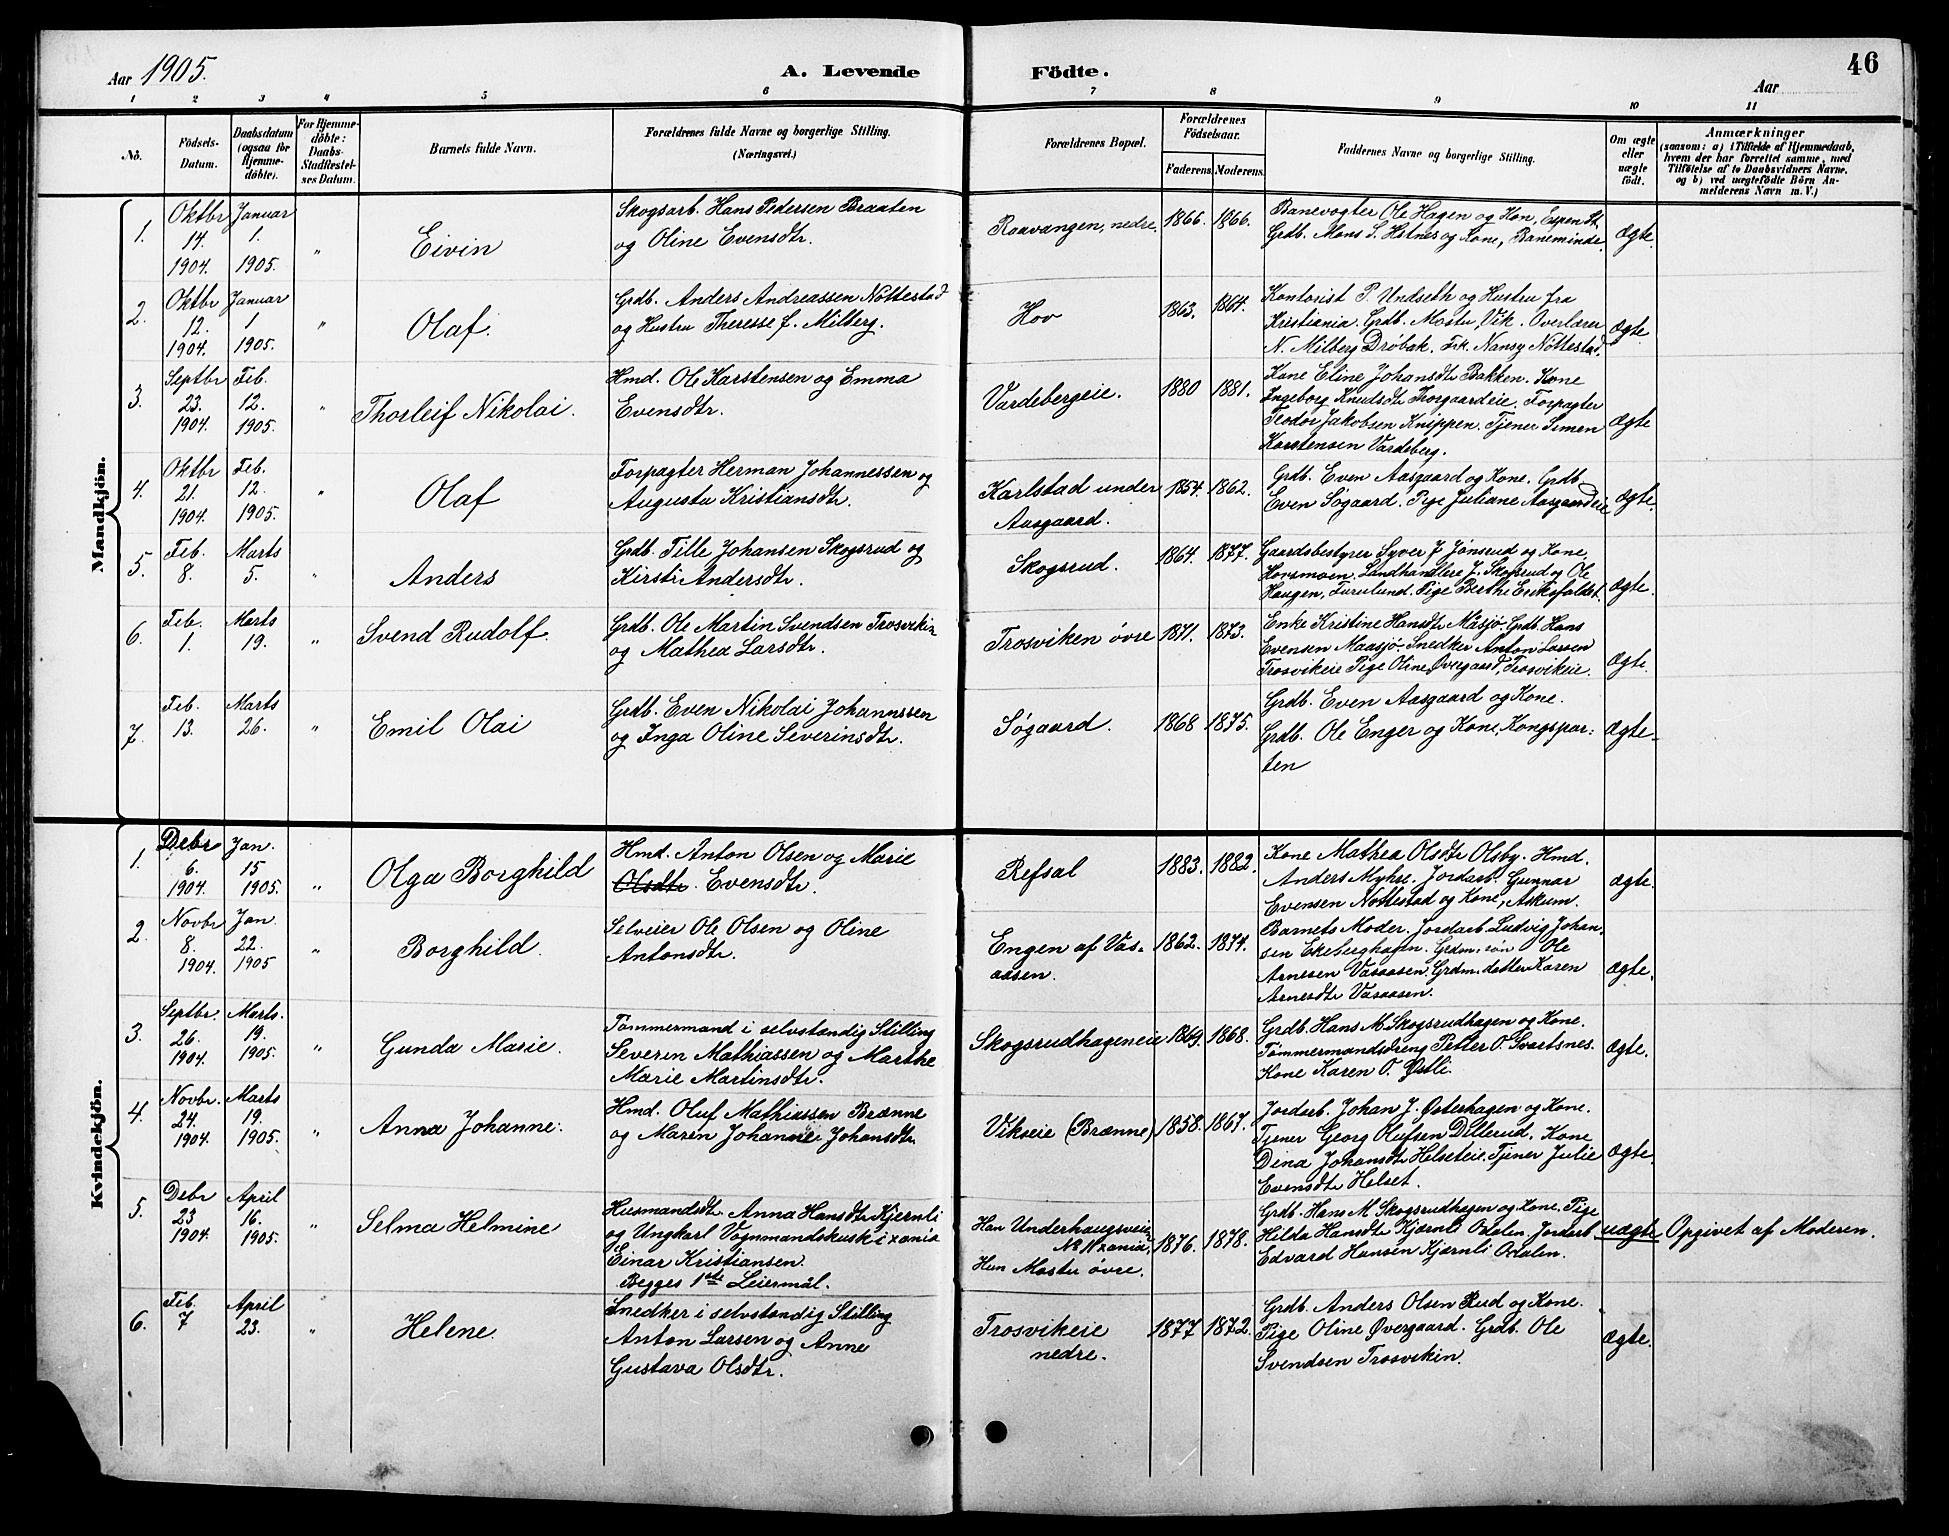 Aar 1905. A. Levende Födte. Aar 46
1 2 3 4 5 6 7 8 9 10 11
Nö.
Födsels-Datum.
Daabsdatum (ogsaa for Hjemme-döbte).
For Hjemme-döbte: Daabs-Stadfæstel-ses Datum.
Barnets fulde Navn.
Forældrenes fulde Navne og borgerlige Stilling.
(Næringsvei.)
Forældrenes Bopæl.
Forældrenes Födselsaar.
Faderens. Moderens.
Faddernes Navne og borgerlige Stilling.
Om ægte eller uægte födt.
Anmærkninger
(saasom: a) i Tilfælde af Hjemmedaab,
hvem der har forrettet samme, med
Tilföielse af to Daabsvidners Navne,
og b) ved uægtefödte Börn An-
melderens Navn m. V.)
Mandkjön.
1. Oktbr 14. 1904. Januar 1. 1905. " Eivin
Skogsarb. Hans Pedersen Braaten
og Oline Evensdtr.
Raavangen, nedre. 1866. 1866.
Banevogter Ole Hagen og Kon, Espen St.
Grdb. Mons S. Hstnes og Kone, Baneminde.
Ægte.
2. Oktbr 12. 1904. Januar 1 1905. " Olaf.
Grdb. Anders Andreassen Nøttestad
og Hustru Theresse f. Milberg.
Hov 1863. 1864.
Kontorist P. Undseth og Hustru fra
Kristiania. Grdb. Mostu, Vik. Overlærer
N. Milberg Drøbak. Frk. Nansy Nøttestad.
Ægte
3. Septbr 23. 1904. Feb. 12. 1905. " Thorleif Nikolai.
Hmd. Ole Karstensen og Emma
Evensdtr.
Vardebergeie. 1880 1881.
Kone Eline Johansdtr Bakken. Kone
Ingeborg Knudsdtr Thorgaardeie. Forpagter
Teodor Jakobsen Knippen. Tjener Simen
Karstensen Vardeberg.
Ægte
4. Oktbr 21. 1904. Feb. 12. 1905. " Olaf
Forpagter Herman Johannessen og
Augusta Kristiansdtr.
Karlstad under
Aasgaard.
1854. 1862.
Grdb. Even Aasgaard og Kone. Grdb
Even Søgaard. Pige Juliane Aasgaardeie
Ægte.
5. Feb. 8. Marts 5. " Anders
Grdb. Tille Johansen Skogsrud og
Kirsti Andersdtr.
Skogsrud. 1864. 1877.
Gaardsbestyrer Syver J Jønsrud og Kone,
Horsmoen. Landhandlere J. Skogsrud og Ole
Haugen, Furulund. Pige Berthe Eriksfaldet.
Ægte.
6. Feb. 1. Marts 19. " Svend Rudolf.
Grdb. Ole Martin Svendsen Trosvikin
og Mathea Larsdtr.
Trosviken øvre 1871. 1873.
Enke Kristine Hansdtr Måsjø. Grdb. Hans
Evensen Maasjø. Snedker Anton Larsen
Trosvikeie Pige Oline Øvergaard, Trosvikeie.
Ægte.
7. Feb. 13. Marts 26. " Emil Olai
Grdb. Even Nikolai Johannssen
og Inga Oline Severinsdtr.
Søgaard. 1868 1875.
Grdb. Even Aasgaard og Kone.
Grdb. Ole Enger og Kone, Kongspar-
ten
Ægte.
Kvindekjön.
1. Debr 6. 1904. Jan. 15 1905. " Olga Borghild
Hmd. Anton Olsen og Marie
Olsdtr. Evensdtr.
Refsal 1883. 1882.
Kone Mathea Olsdtr Olsby. Hmd.
Anders Myhre. Jordarb. Gunnar
Evensen Nøttestad og Kone, Askum.
Ægte.
2. Novbr 8. 1904. Jan. 22. 1905 " Borghild.
Selveier Ole Olsen og Oline
Antonsdtr.
Engen af Vas-
aasen.
1862. 1874.
Barnets Moder. Jordarb. Ludvig Johan-
sen Ekeberghagen. Grdm. søn Ole
Arnesen Vasaasen. Grdm. datter Karen
Arnesdtr Vasaasen.
Ægte.
3. Septbr. 26. 1904. Marts. 19. 1905. " Gunda Marie.
Tømmermand i selvstændig Stilling
Severin Mathiassen og Marthe
Marie Martinsdtr.
Skogsrudhageneie 1869. 1868.
Grdb. Hans M. Skogsrudhagen og Kone.
Tømmermandsdreng Petter O. Svartsnes.
Kone Karen O. Østli.
Ægte.
4. Novbr. 24. 1904. Marts 19. 1905. " Anna Johanne.
Hmd. Oluf Mathiassen Brænne
og Maren Johanne Johansdtr.
Vikseie (Brænne) 1858. 1867.
Jordarb. Johan J. Østerhagen og Kone.
Tjener Georg Olufsen Dillerud. Kone
Dina Johansdtr Helseteie. Tjener Julie
Evensdtr Helset.
Ægte.
5. Debr 23 1904. April 16. 1905. " Selma Helmine
Husmandsdtr. Anna Hansdtr Kjernli
og Ungkarl Vognmandskusk i xania
Einar Kristiansen.
Begges 1ste Leiermål.
Han Underhaugsveien
No 11 xania,
Hun Mostu øvre.
1876. 1878.
Grdb. Hans M Skogsrudhagen og Kone. Pige
Hilda Hansdtr Kjærnli Odalen. Jordarb
Edvard Hansen Kjærnli Odalen.
uægte Opgivet af Moderen.
6. Feb. 7 April 23. " Helene.
Snedker i selvstændig Stilling
Anton Larsen og Anne
Gustava Olsdtr.
Trosvikeie
nedre.
1877 1872.
Grdb. Anders Olsen Rud og Kone.
Pige Oline Øvergaard. Grdb. Ole
Svendsen Trosvikin.
Ægte.